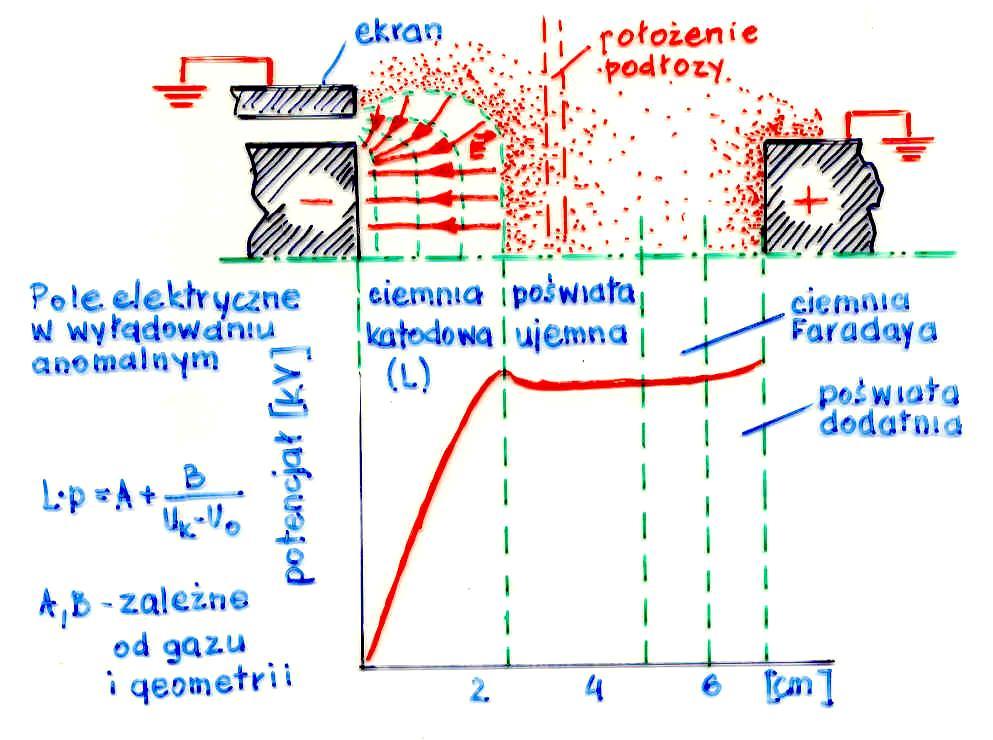 ekran
położenie
podłoży
E
−
+
Pole elektryczne
w wyładowaniu
anomalnym
ciemnia
katodowa
(L)
poświata
ujemna
ciemnia
Faradaya
poświata
dodatnia
potencjał [kV]
L·p = A + B / (Uk - Uo)
A, B - zależne
od gazu
i geometrii
2 4 6 [cm]